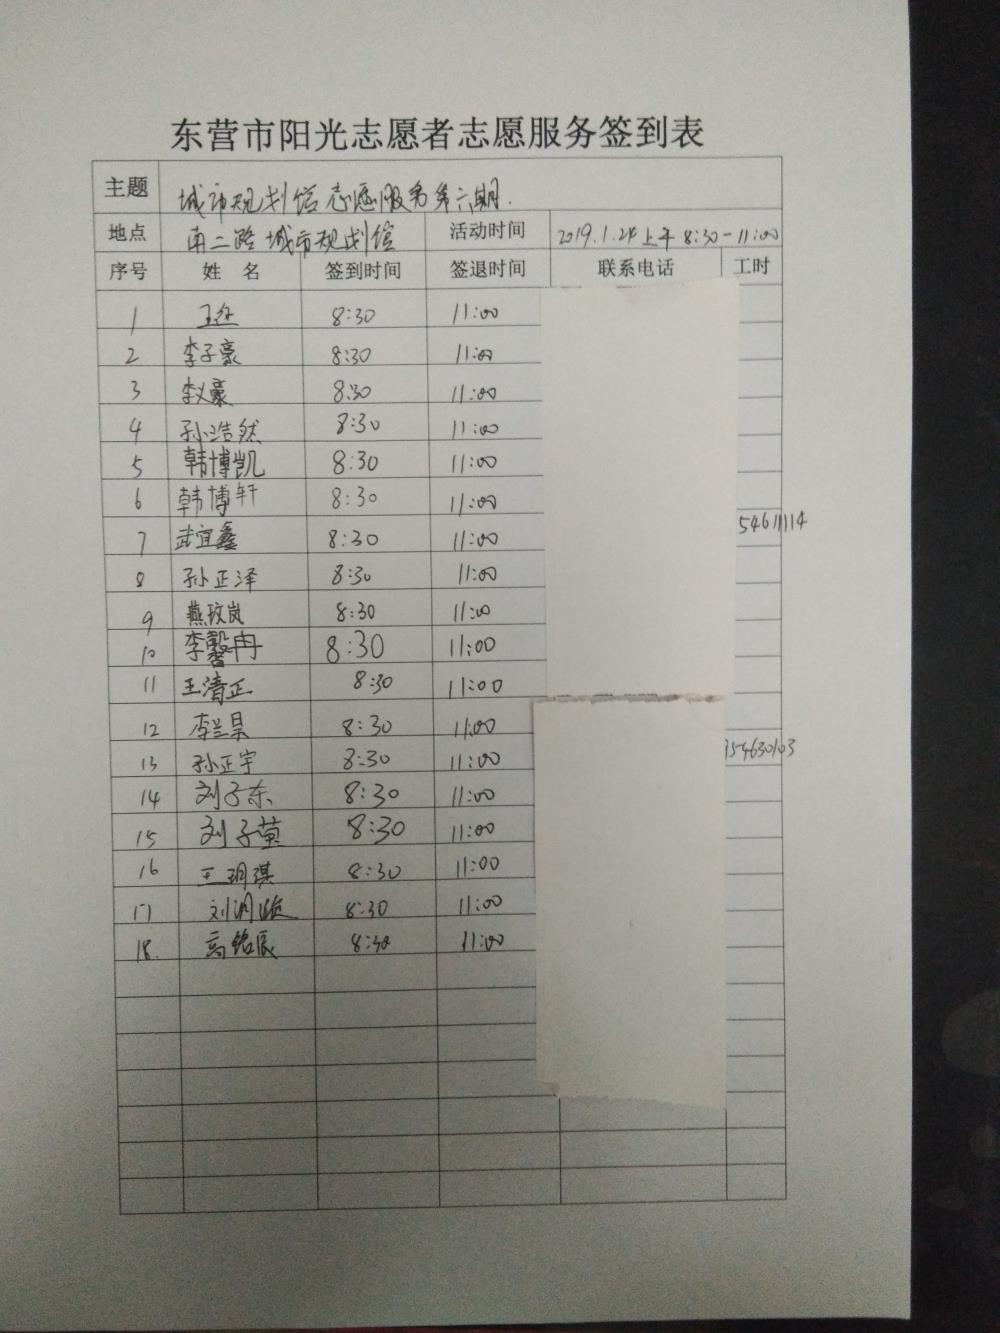 东营市阳光志愿者志愿服务签到表
主题 城市规划馆志愿服务第六期.
地点 南二路城市规划馆 活动时间 2019.1.24上午8:30-11:00
序号 姓 名 签到时间 签退时间 联系电话 工时
1 8:30 11:00
2 李子豪 8:30 11:00
3 李义豪 8:30 11:00
4 孙浩然 8:30 11:00
5 韩博凯 8:30 11:00
6 韩博轩 8:30 11:00
7 武宜鑫 8:30 11:00 54611114
8 孙正泽 8:30 11:00
9 燕玟岚 8:30 11:00
10 李馨冉 8:30 11:00
11 王清正 8:30 11:00
12 李兰昊 8:30 11:00
13 孙正宇 8:30 11:00 154630103
14 刘子东 8:30 11:00
15 刘子萱 8:30 11:00
16 王玥琪 8:30 11:00
17 刘 8:30 11:00
18. 高铭辰 8:30 11:00